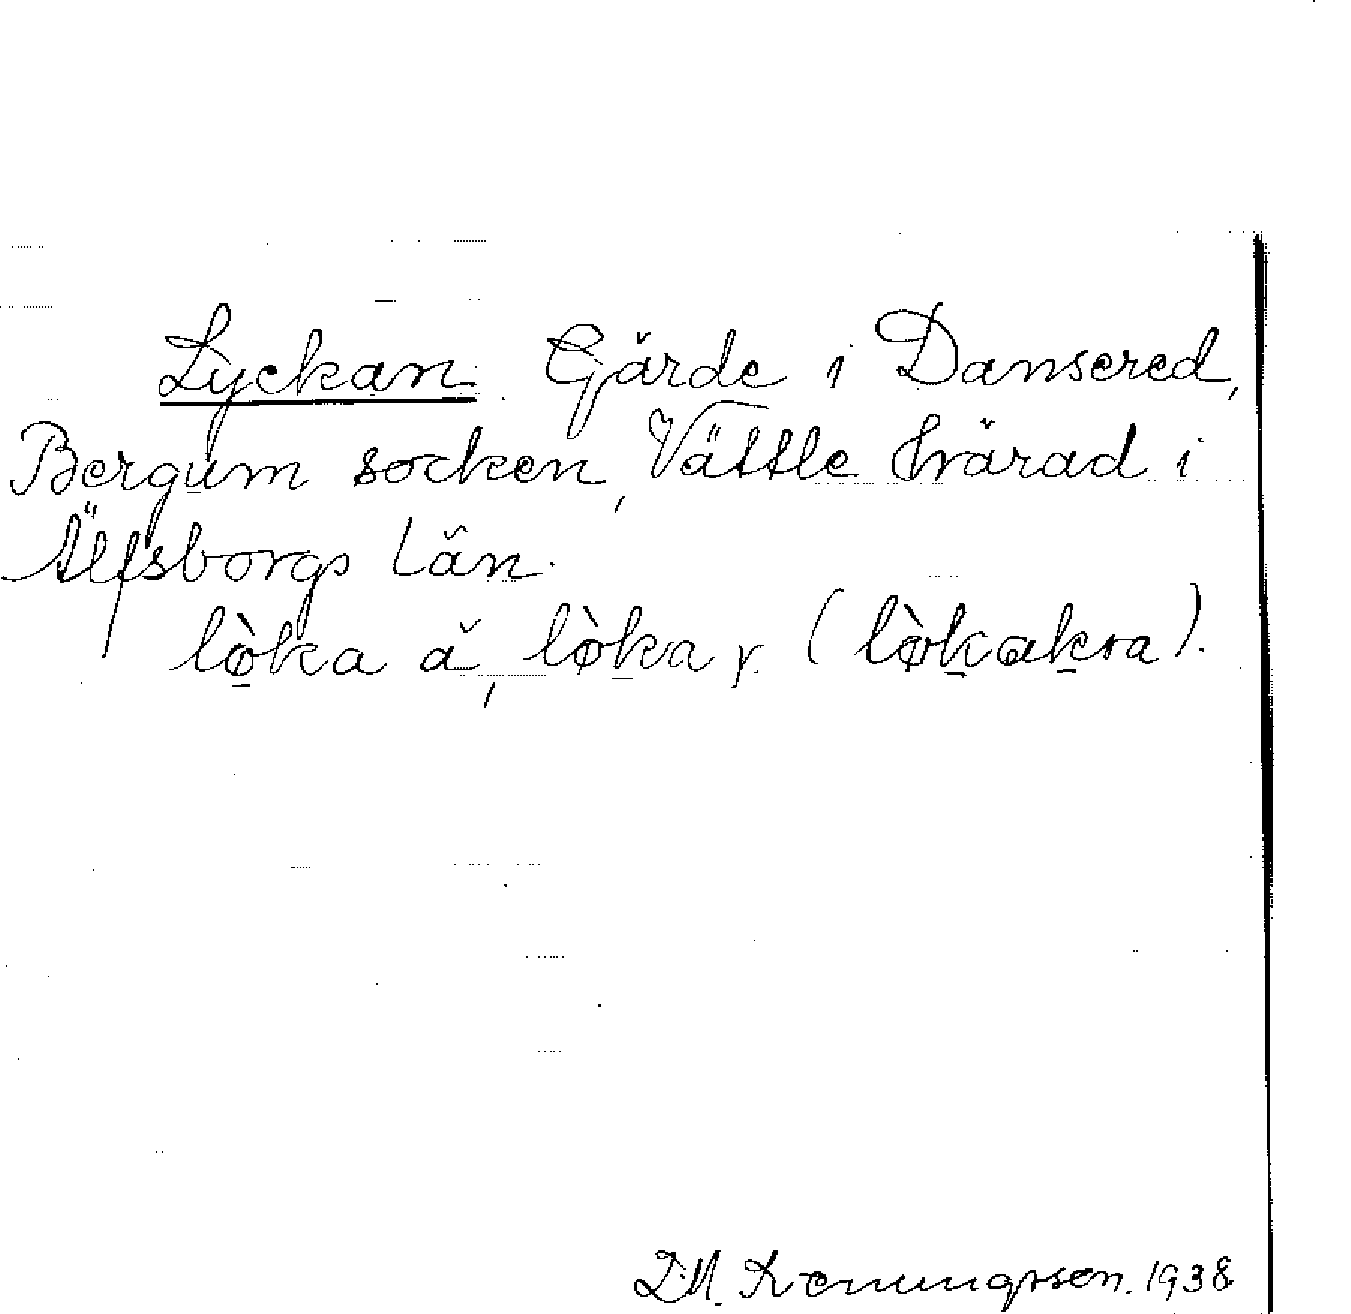 Lyckan. Gärde i Dansered,
Bergum socken, Vättle härad i
Älfsborgs län.
lø̀ka å, lø̀ka, r. (lø̀kakra).
1938